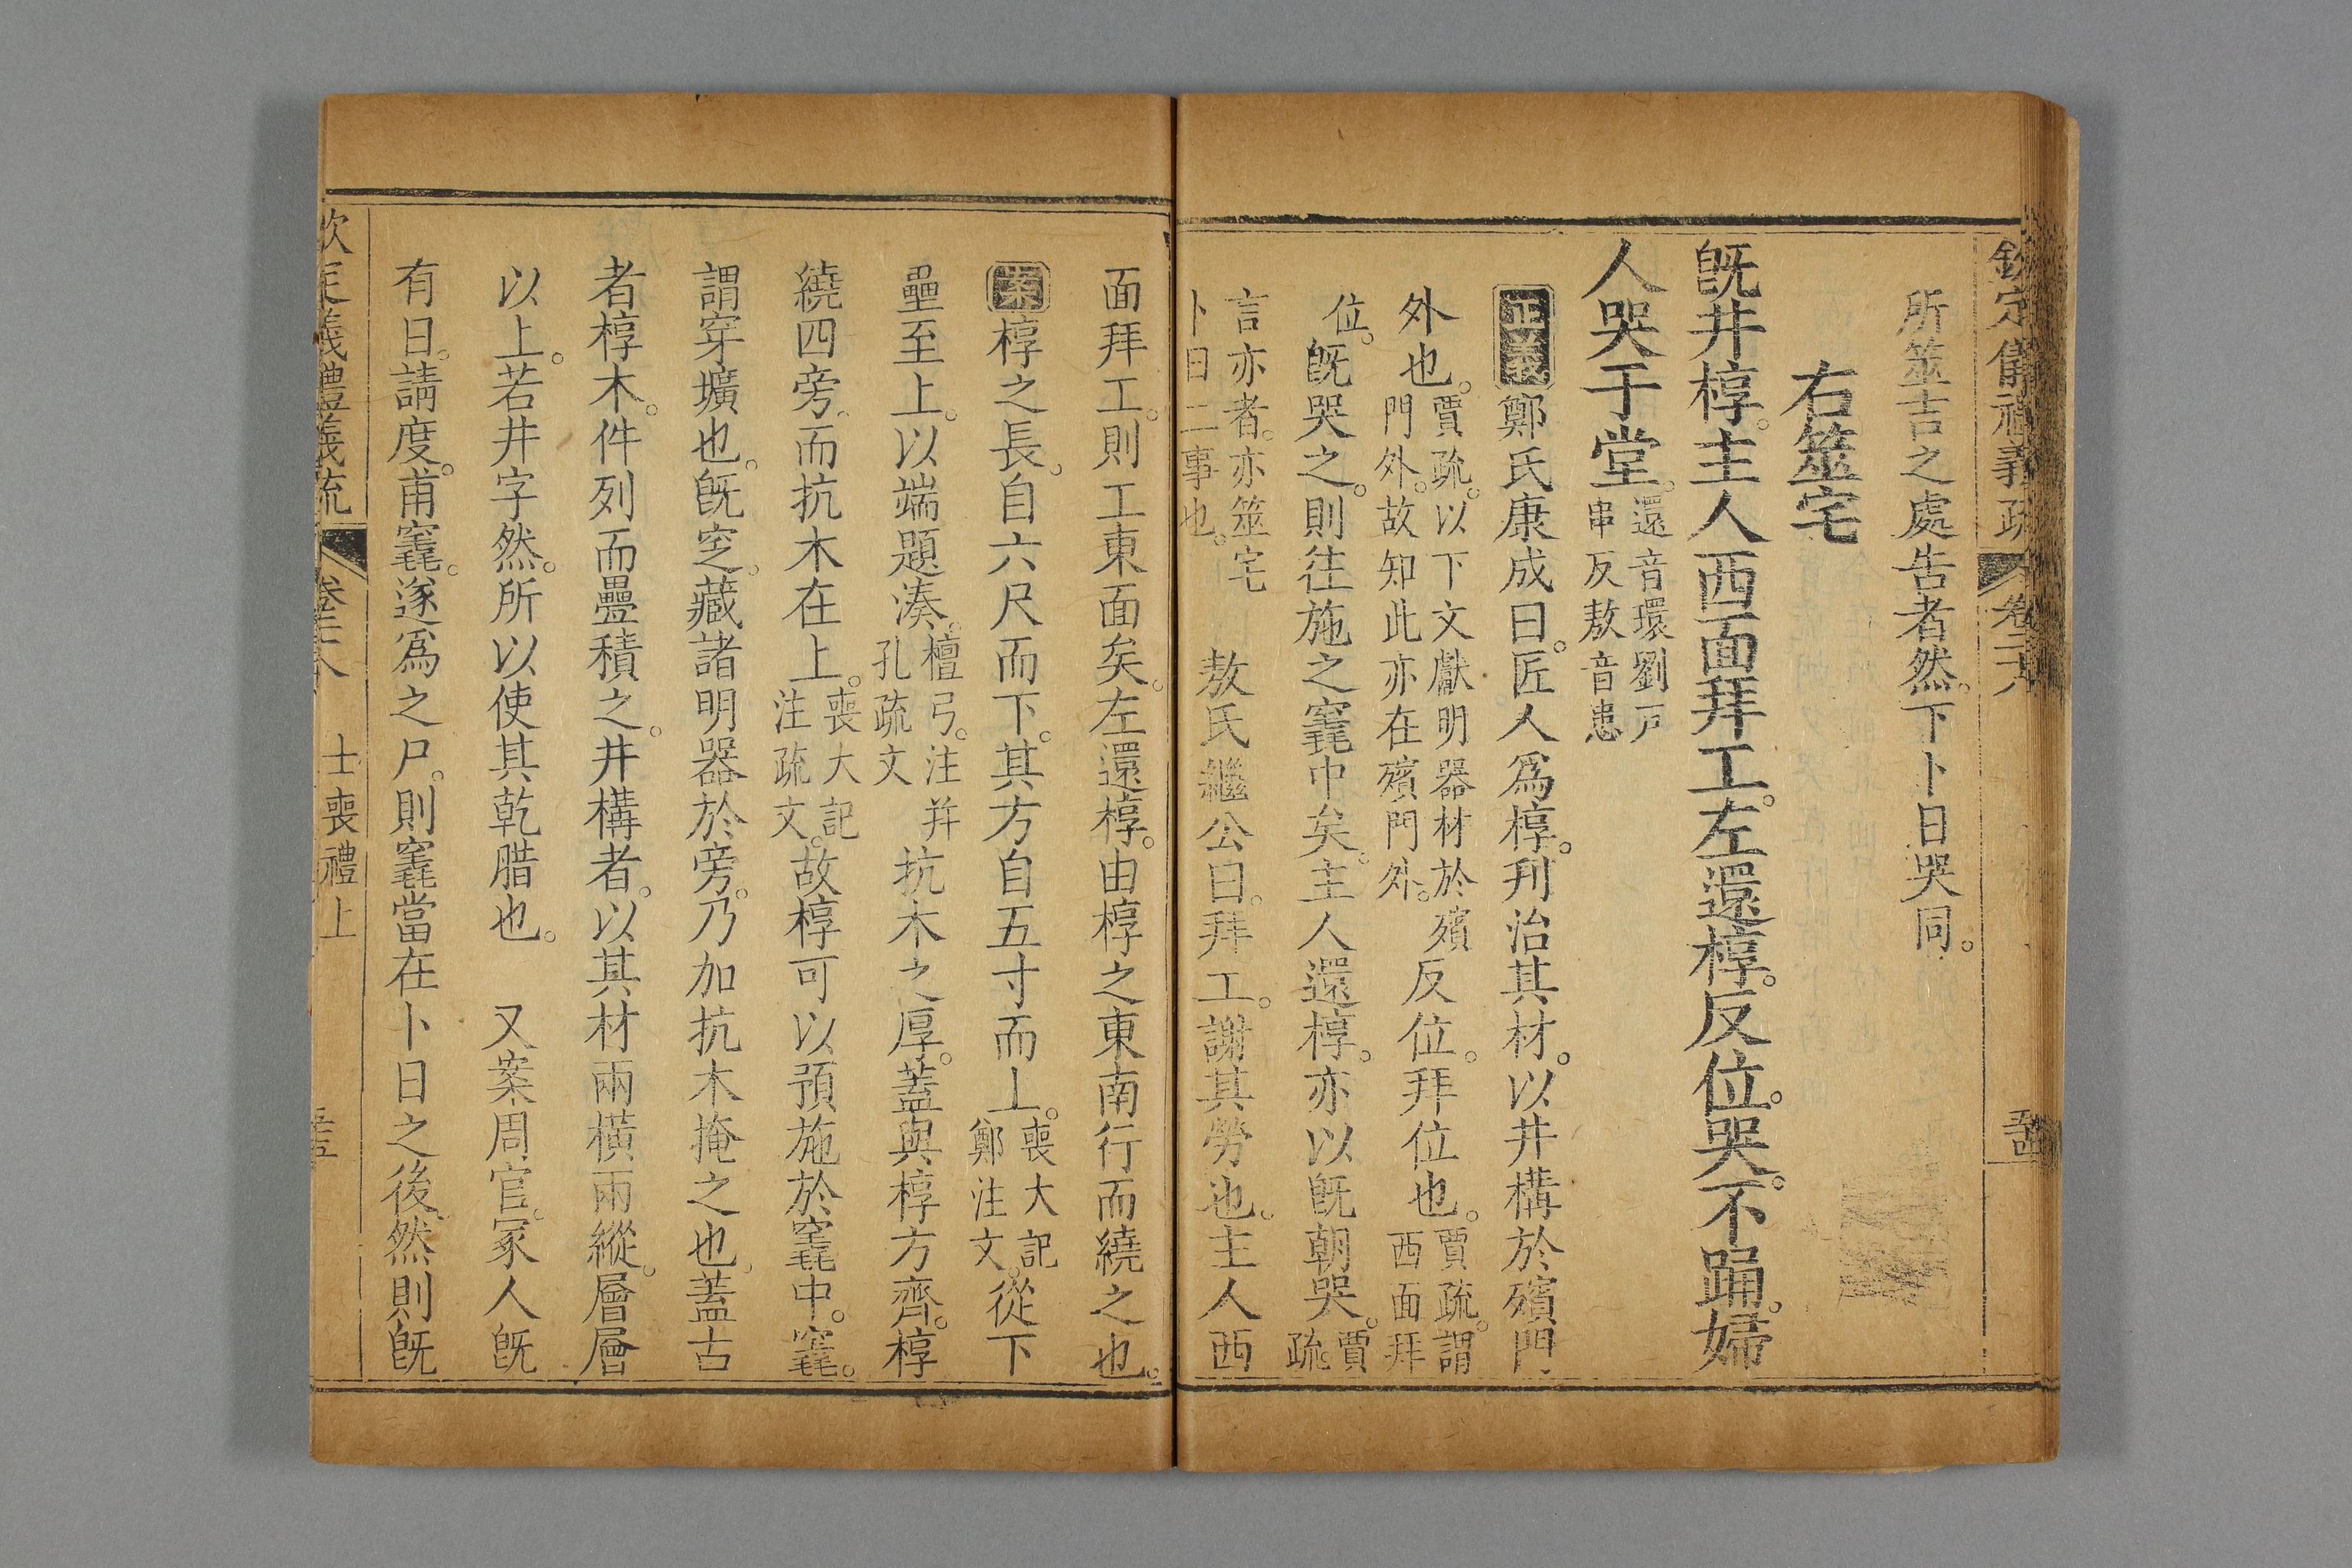 欽定儀禮義疏 卷二十八 五十四
所筮吉之處告者然。下卜日哭同。
右筮宅
既井椁。主人西面拜工。左還椁。反位。哭。不踊。婦
人哭于堂。還音環劉戸串反敖音患
正義鄭氏康成曰。匠人爲椁。刋治其材。以井構於殯門
外也。賈疏。以下文獻明器材於殯門外。故知此亦在殯門外。反位。拜位也。賈疏。謂西面拜
位。既哭之。則往施之竁中矣。主人還椁。亦以既朝哭。賈疏。
言亦者。亦筮宅卜日二事也。 敖氏繼公曰。拜工。謝其勞也。主人西
面拜工。則工東面矣。左還椁。由椁之東南行而繞之也。
案椁之長。自六尺而下。其方自五寸而上。喪大記鄭注文。從下
壘至上。以端題湊。檀弓。注并孔疏文 抗木之厚。蓋與椁方齊。椁
繞四旁。而抗木在上。喪大記注疏文。故椁可以預施於竁中。竁。
謂穿壙也。既窆。藏諸明器於旁。乃加抗木掩之也。蓋古
者椁木。件列而疊積之。井構者。以其材兩橫兩縱。層層
以上。若井字然。所以使其乾腊也。 又案周官。冢人既
有日。請度。甫竁。遂爲之尸。則竁當在卜日之後。然則既
欽定儀禮義疏 卷二十八 士喪禮上 五十五